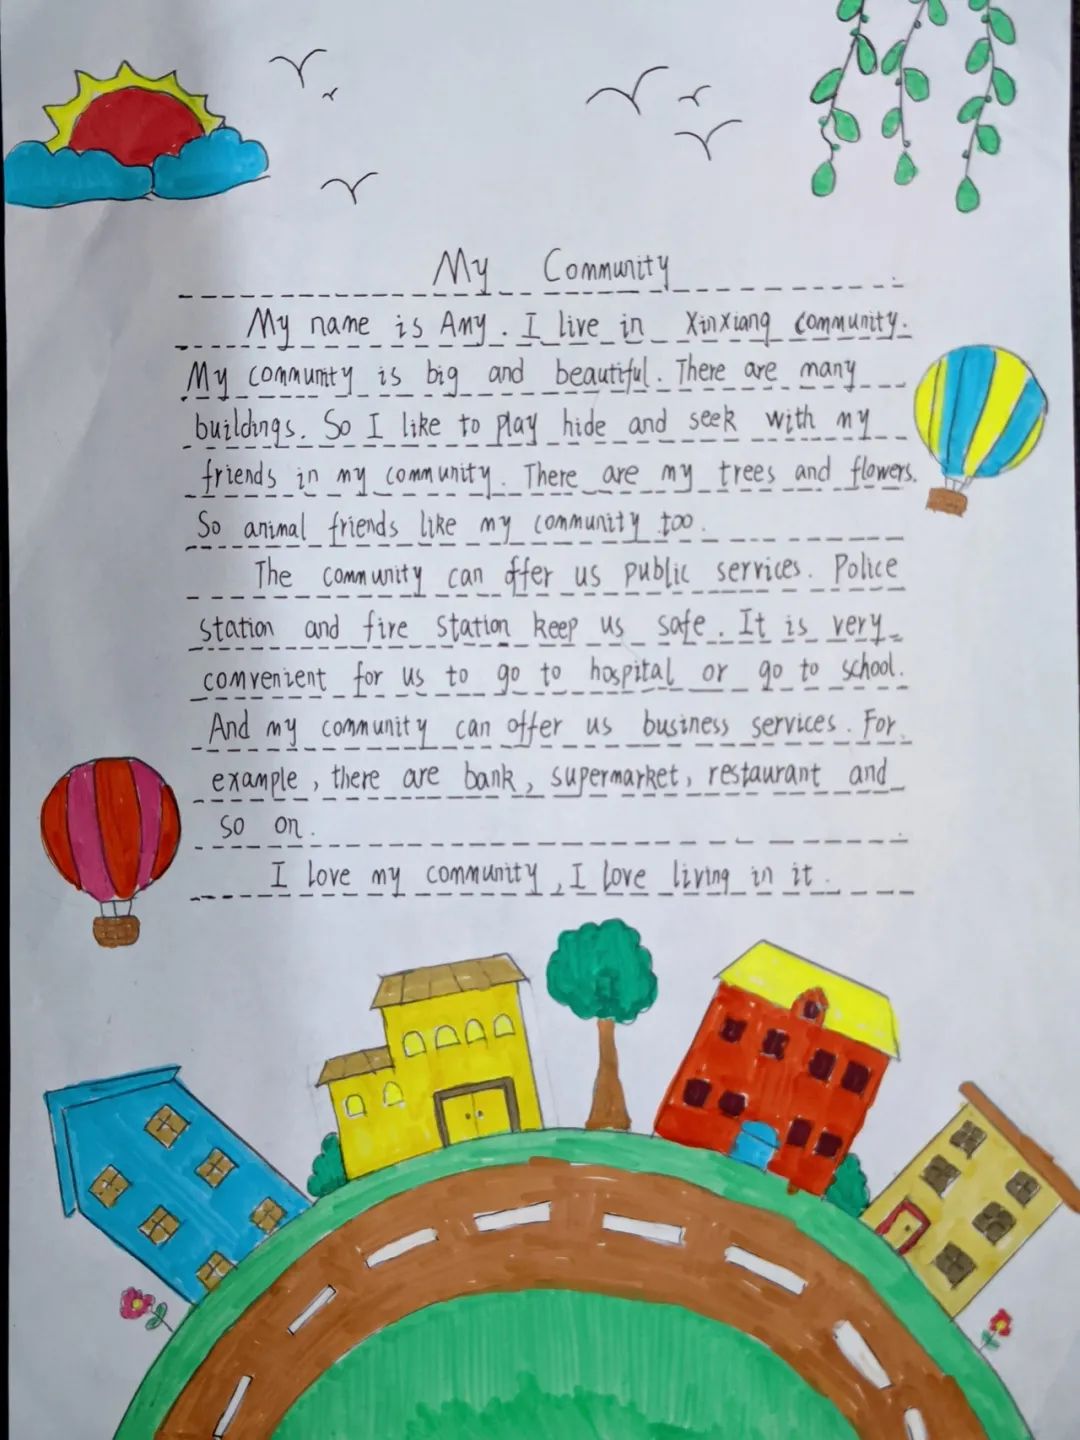 My Community
My name is Amy. I live in Xinxiang community.
My community is big and beautiful. There are many
buildings. So I like to play hide and seek with my
friends in my community. There are my trees and flowers.
So animal friends like my community too.
The community can offer us public services. Police
station and fire station keep us safe. It is very
comvenient for us to go to hospital or go to school.
And my community can offer us business services. For
example, there are bank, supermarket, restaurant and
so on.
I love my community, I love living in it.